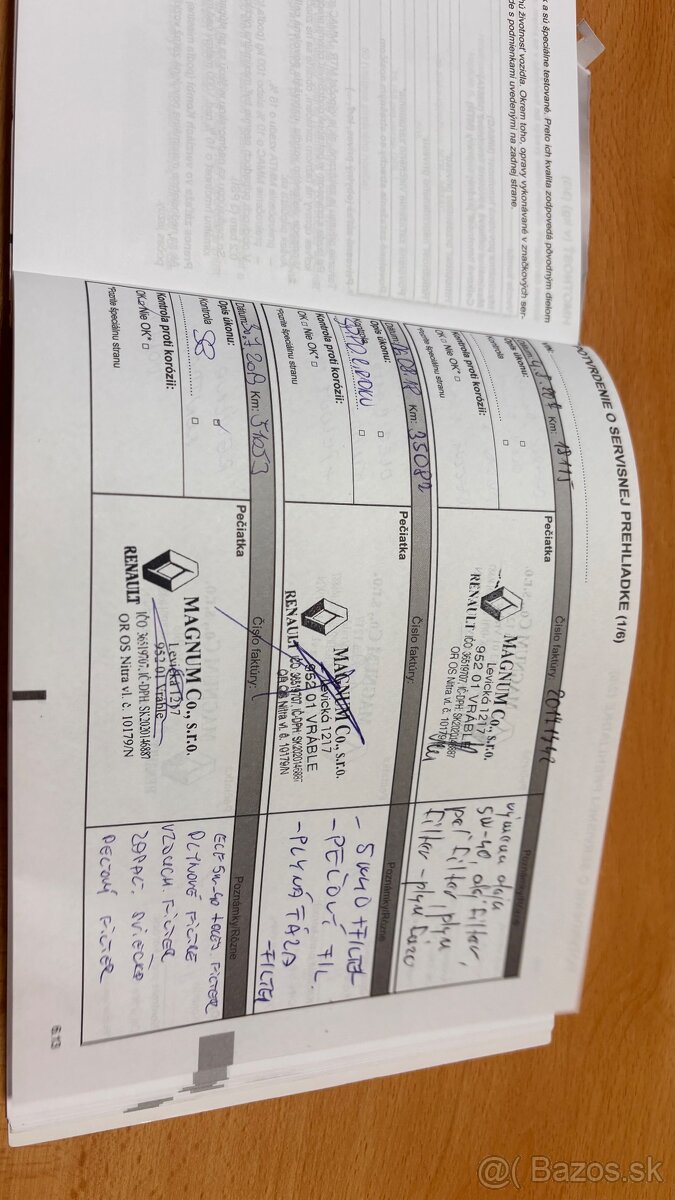 k a sú špeciálne testované. Preto ich kvalita zodpovedá pôvodným dielom
nú životnosť vozidla. Okrem toho, opravy vykonávané v značkových ser-
de s podmienkami uvedenými na zadnej strane.
POTVRDENIE O SERVISNEJ PREHLIADKE (1/6)
VIN:
Dátum: Km: 18115
Číslo faktúry:
Opis úkonu:
Kontrola
Kontrola proti korózii:
OK □ Nie OK* □
*Pozrite špeciálnu stranu
Pečiatka
MAGNUM Co., s.r.o.
Levická 1217
952 01 VRÁBLE
IČO 36519707, IČ-DPH: SK2020146887
OR OS Nitra vl. č. 10179/N
RENAULT
Poznámky/Rôzne
výmena oleja
5w-40, olej filter,
peľ filter, plyn
filter - plyn fáza
Dátum: Km: 35082
Opis úkonu:
Kontrola
Kontrola proti korózii:
OK □ Nie OK* □
*Pozrite špeciálnu stranu
Pečiatka
MAGNUM Co., s.r.o.
Levická 1217
952 01 VRÁBLE
IČO 36519707, IČ-DPH: SK2020146887
OR OS Nitra vl. č. 10179/N
RENAULT
Poznámky/Rôzne
- 5W40 + FILTER
- PEĽOVÝ FIL.
- PLYNÁ FÁZA
- FILTER
Dátum: 3.7.2019 Km: 51053
Číslo faktúry:
Opis úkonu:
Kontrola
Kontrola proti korózii:
OK □ Nie OK* □
*Pozrite špeciálnu stranu
Pečiatka
MAGNUM Co., s.r.o.
Levická 1217
952 01 Vráble
IČO 36519707, IČ-DPH: SK2020146887
OR OS Nitra vl. č. 10179/N
RENAULT
Poznámky/Rôzne
ELF 5W-40 FILTER
PLYNOVÉ FILTRE
VZDUCH. FILTER
ZAPAĽ. SVIEČKO
PEĽOVÝ FILTER
6.13
Bazos.sk